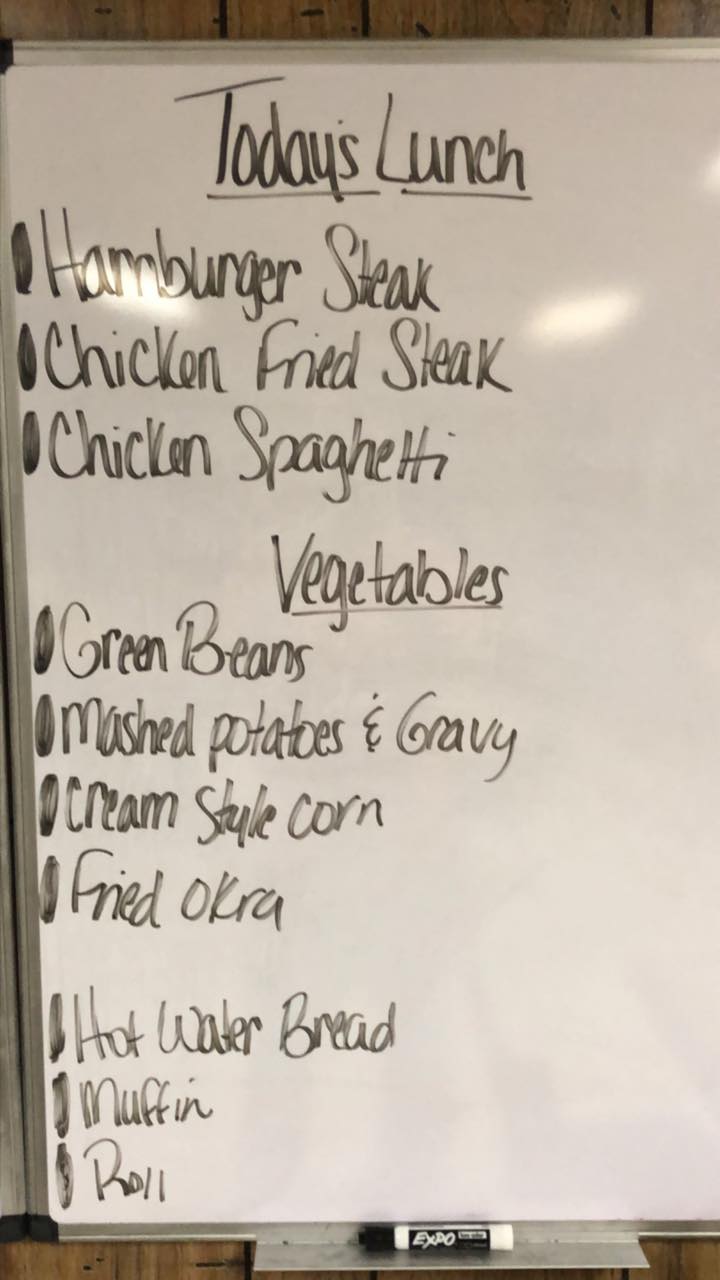 Today's Lunch
Hamburger Steak
Chicken Fried Steak
Chicken Spaghetti
Vegetables
Green Beans
Mashed potatoes & Gravy
Cream Style corn
Fried okra
Hot Water Bread
Muffin
Roll
EXPO